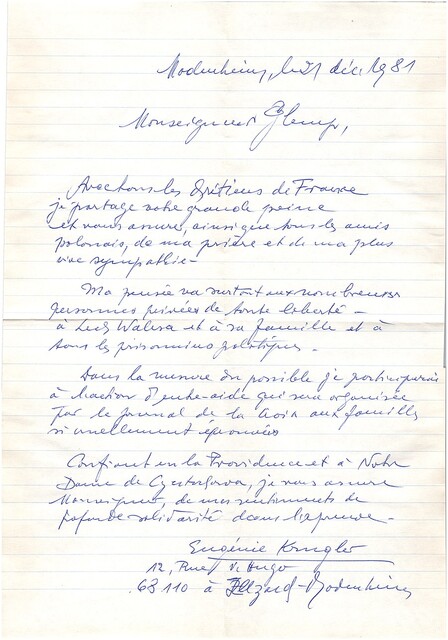 Modenheim, le 21 déc. 1981
Monseigneur Glemp,
Avec tous les Chrétiens de France
je partage votre grande peine
et vous assure, ainsi que tous les amis
polonais, de ma prière et de ma plus
vive sympathie -
Ma pensée va surtout aux nombreuses
personnes privées de toute liberté -
à Lech Walesa et à sa famille et à
tous les prisonniers politiques -
Dans la mesure du possible je participerai
à l'action d'entr-aide qui sera organisée
par le journal de la Croix aux familles
si cruellement éprouvées
Confiant en la Providence et à Notre
Dame de Czestochowa, je vous assure
Monseigneur, de mes sentiments de
profonde solidarité dans l'épreuve -
Eugénie
12, Rue V. Hugo
68110 à Illzach-Modenheim